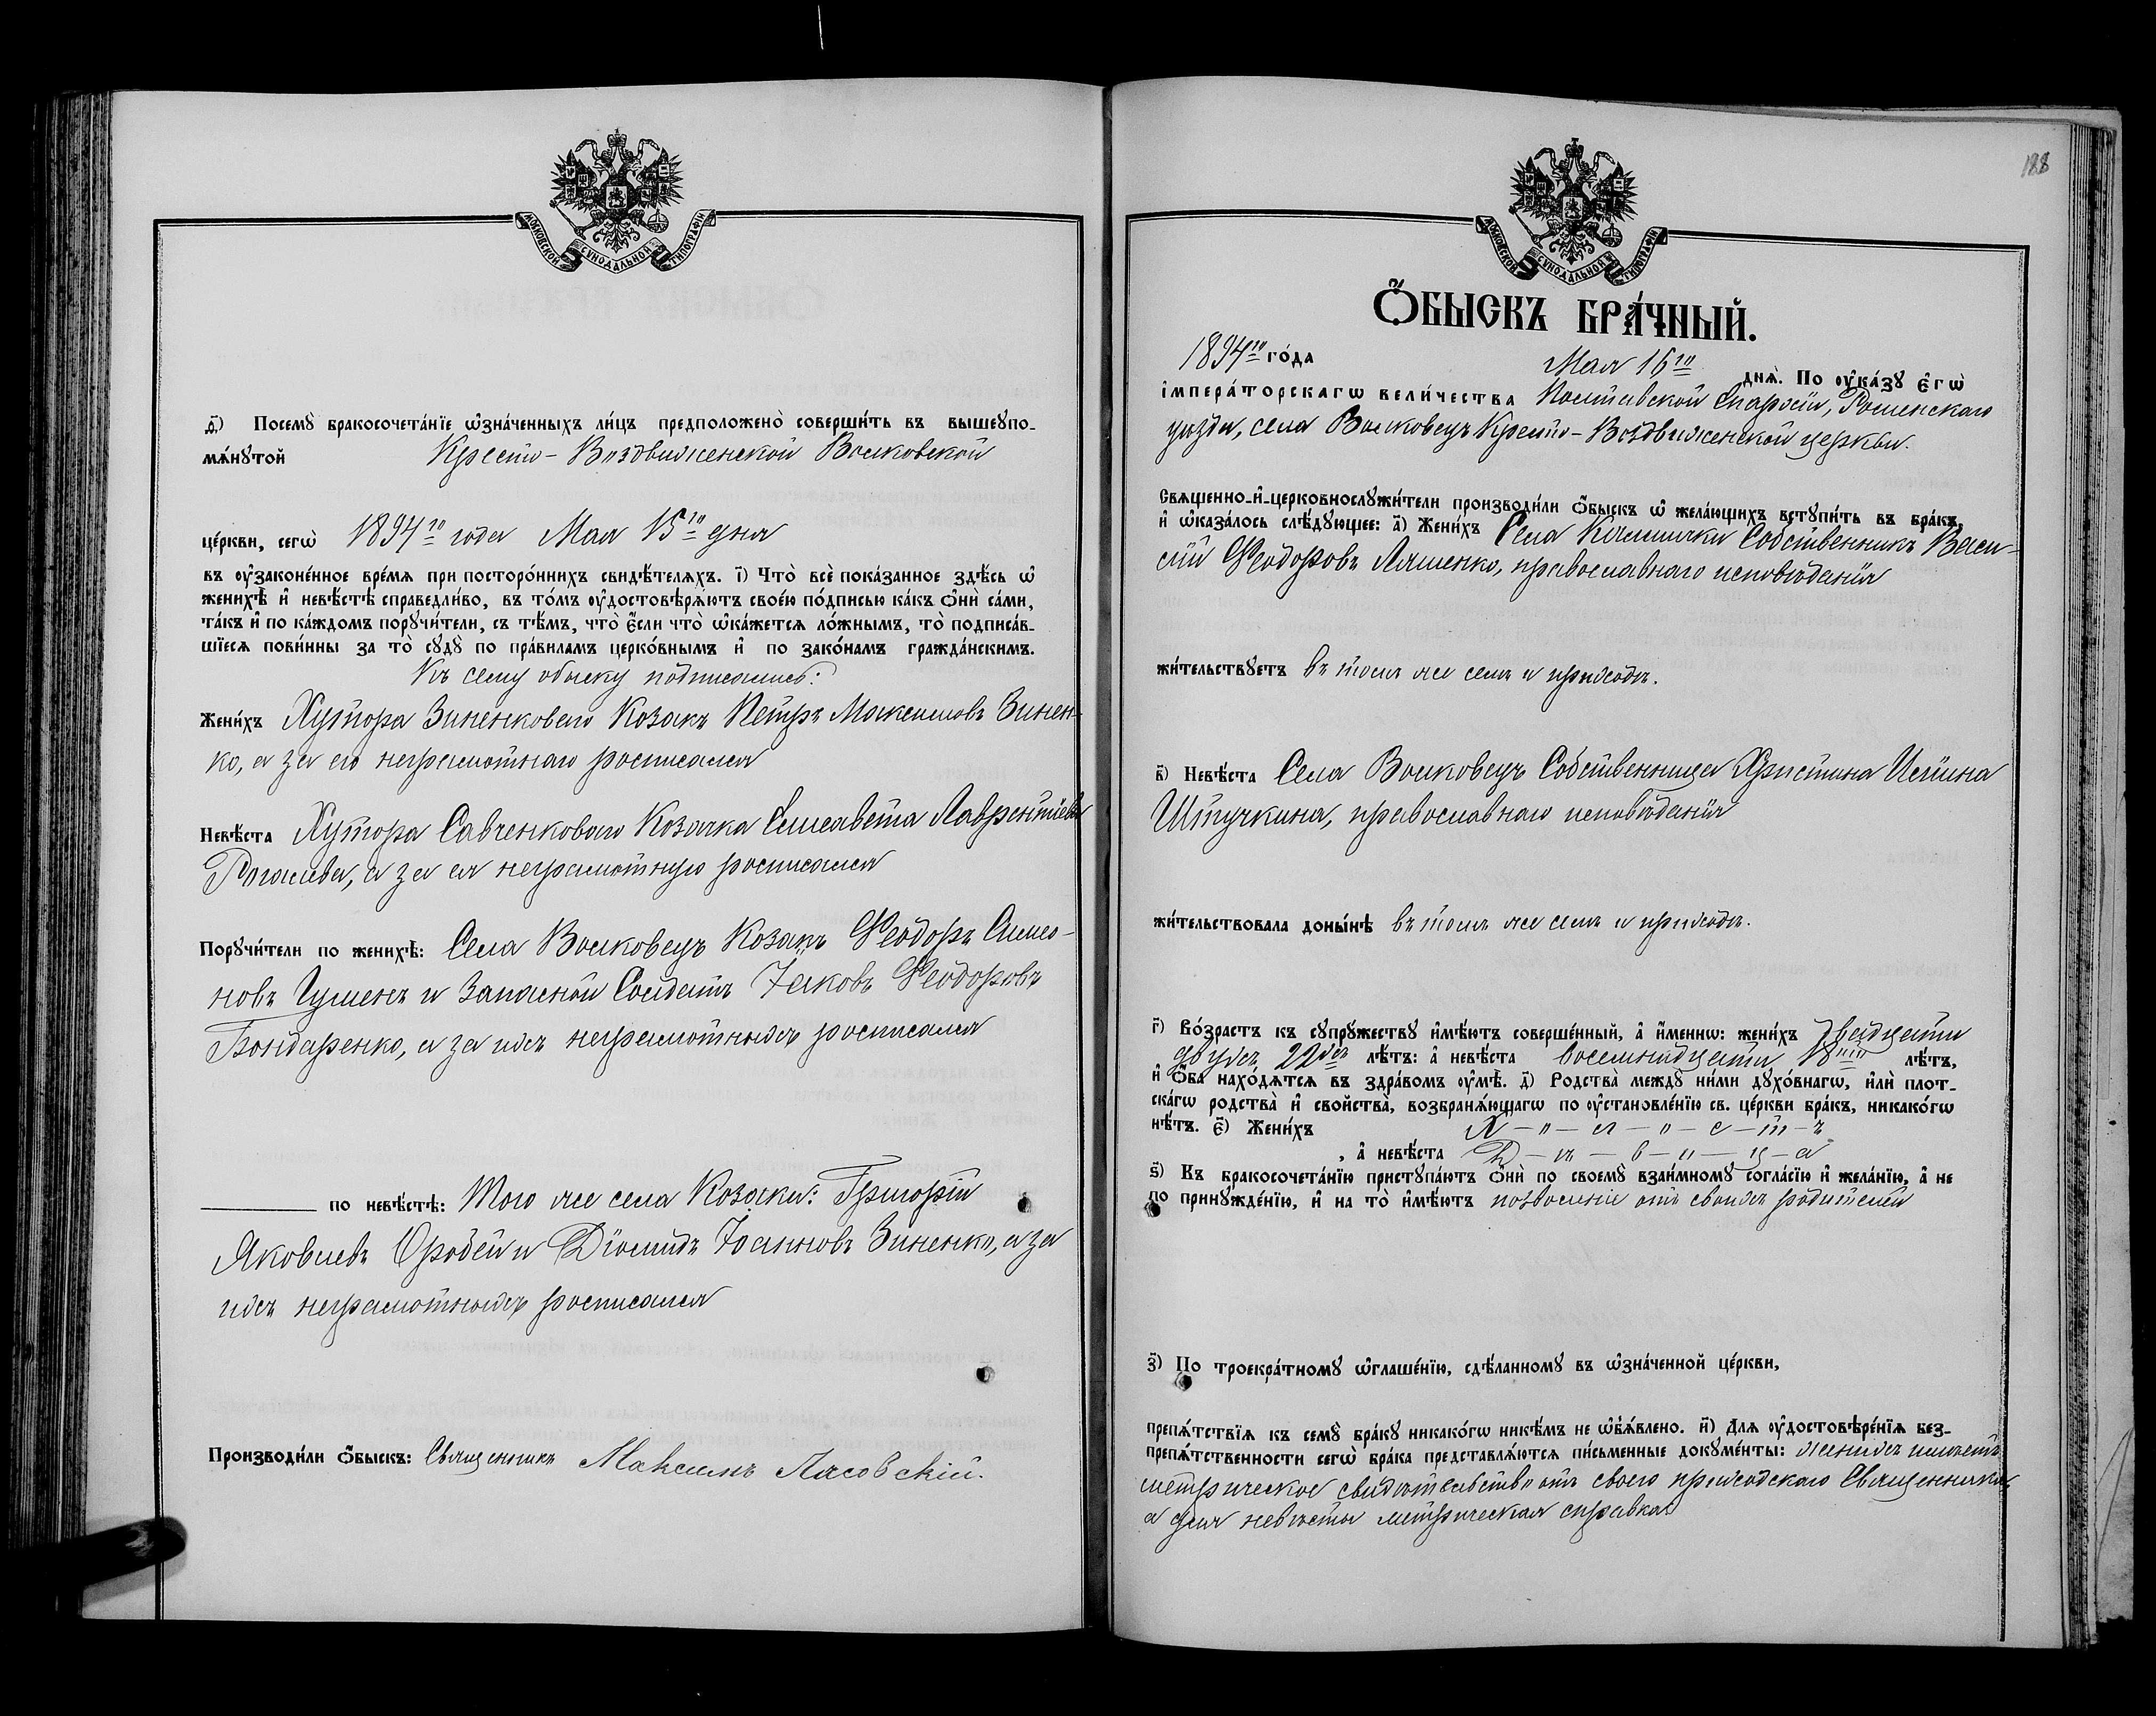 МОСКОВСКОЙ СѴНОДАЛЬНОЙ ТИПОГРАФІИ
д҃) Посемꙋ̀ бракосочета́нїе ѡ҆зна́ченныхъ ли́цъ предположено̀ соверши́ть въ вышеꙋпо-
мѧ́нꙋтой Кресто-Воздвиженской Волковской
це́ркви, сегѡ̀ 1894го года Мая 15го дня
въ ᲂу҆зако́ненное вре́мѧ при посторо́ннихъ свидѣ́телѧхъ. і҃) Что̀ всѐ пока́занное здѣ́сь ѡ҆
женихѣ̀ и҆ невѣ́стѣ справедли́во, въ то́мъ ᲂу҆достовѣрѧ́ютъ свое́ю по́дписью ка́къ ѻ҆нѝ са́ми,
та́къ и҆ по ка́ждомъ порꙋчи́тели, съ тѣ́мъ, что̀ є҆́сли что̀ ѡ҆ка́жетсѧ ло́жнымъ, то̀ подписа́в-
шїесѧ пови́нны за то̀ сꙋдꙋ̀ по пра́виламъ церко́внымъ и҆ по зако́намъ гражда́нскимъ.
Къ сему обыску подписались:
Жени́хъ Хутора Зиненкового Козакъ Петръ Максимовъ Зинен-
ко, а за его неграмотнаго росписался
Невѣ́ста Хутора Савченкового Козачка Елисавета Лаврентіева
Рогалева, а за ея неграмотную росписался
Порꙋчи́тели по женихѣ̀: Села Волковецъ Козакъ Ѳеодоръ Симео-
новъ Чуменъ и Запасной Солдатъ Іаковъ Ѳеодоровъ
Бондаренко, а за ихъ неграмотныхъ росписался
по невѣ́стѣ: Того же села Козаки: Григорій
Яковлевъ Оробей и Діомидъ Іоанновъ Зиненко, а за
ихъ неграмотныхъ росписался
Производи́ли ѻ҆́быскъ: Священникъ Максимъ Лясовскій.
188
МОСКОВСКОЙ СѴНОДАЛЬНОЙ ТИПОГРАФІИ
Ѻ҆́БЫСКЪ БРА́ЧНЫЙ.
1894го го́да Мая 16го днѧ̀. По ᲂу҆ка́зꙋ є҆гѡ̀
і҆мпера́торскагѡ вели́чества Полтавской Епархіи, Роменскаго
уезда, села Волковецъ Кресто-Воздвиженской церкви.
Свѧщенно-и҆-церковнослꙋжи́тели производи́ли ѻ҆́быскъ ѡ҆ жела́ющихъ встꙋпи́ть въ бра́къ,
и҆ ѡ҆каза́лось слѣ́дꙋющее: а҃) Жени́хъ Села Собственникъ Васи-
лій Ѳеодоровъ Ляшенко, православнаго исповѣданія
жи́тельствꙋетъ въ томъ же селѣ и приходѣ.
в҃) Невѣ́ста Села Волковецъ Собственница Христина Иліина
Штучкина, православнаго исповѣданія
жи́тельствовала доны́нѣ въ томъ же селѣ и приходѣ.
г҃) Во́зрастъ къ сꙋпрꙋ́жествꙋ и҆мѣ́ютъ соверше́нный, а҆ и҆́менно: жени́хъ двадцати
двухъ 22ухъ лѣ́тъ: а҆ невѣ́ста восемнадцати 18ти лѣ́тъ,
и҆ ѻ҆́ба нахо́дѧтсѧ въ здра́вомъ ᲂу҆мѣ̀. д҃) Родства̀ междꙋ̀ ни́ми дꙋхо́внагѡ, и҆лѝ плот-
ска́гѡ родства̀ и҆ свойства̀, возбранѧ́ющагѡ по ᲂу҆становле́нїю св. це́ркви бра́къ, никако́гѡ
нѣ́тъ. є҃) Жени́хъ Х-о-л-о-с-т-ъ
, а҆ невѣ́ста Д-ѣ-в-и-ц-а
ѕ҃) Къ бракосочета́нїю пристꙋпа́ютъ ѻ҆нѝ по своемꙋ̀ взаи́мномꙋ согла́сїю и҆ жела́нїю, а҆ не
по принꙋжде́нїю, и҆ на то̀ и҆мѣ́ютъ позволеніе отъ своихъ родителей
з҃) По троекра́тномꙋ ѡ҆глаше́нїю, сдѣ́ланномꙋ въ ѡ҆зна́ченной це́ркви,
препѧ́тствїѧ къ семꙋ̀ бра́кꙋ никако́гѡ никѣ́мъ не ѡ҆б̾ѧ́влено. и҃) Длѧ ᲂу҆достовѣре́нїѧ без-
препѧ́тственности сегѡ̀ бра́ка представлѧ́ютсѧ пи́сьменные докꙋме́нты: женихъ имѣетъ
метрическое свидѣтельство отъ своего приходскаго Священника,
а для невѣсты метрическая справка